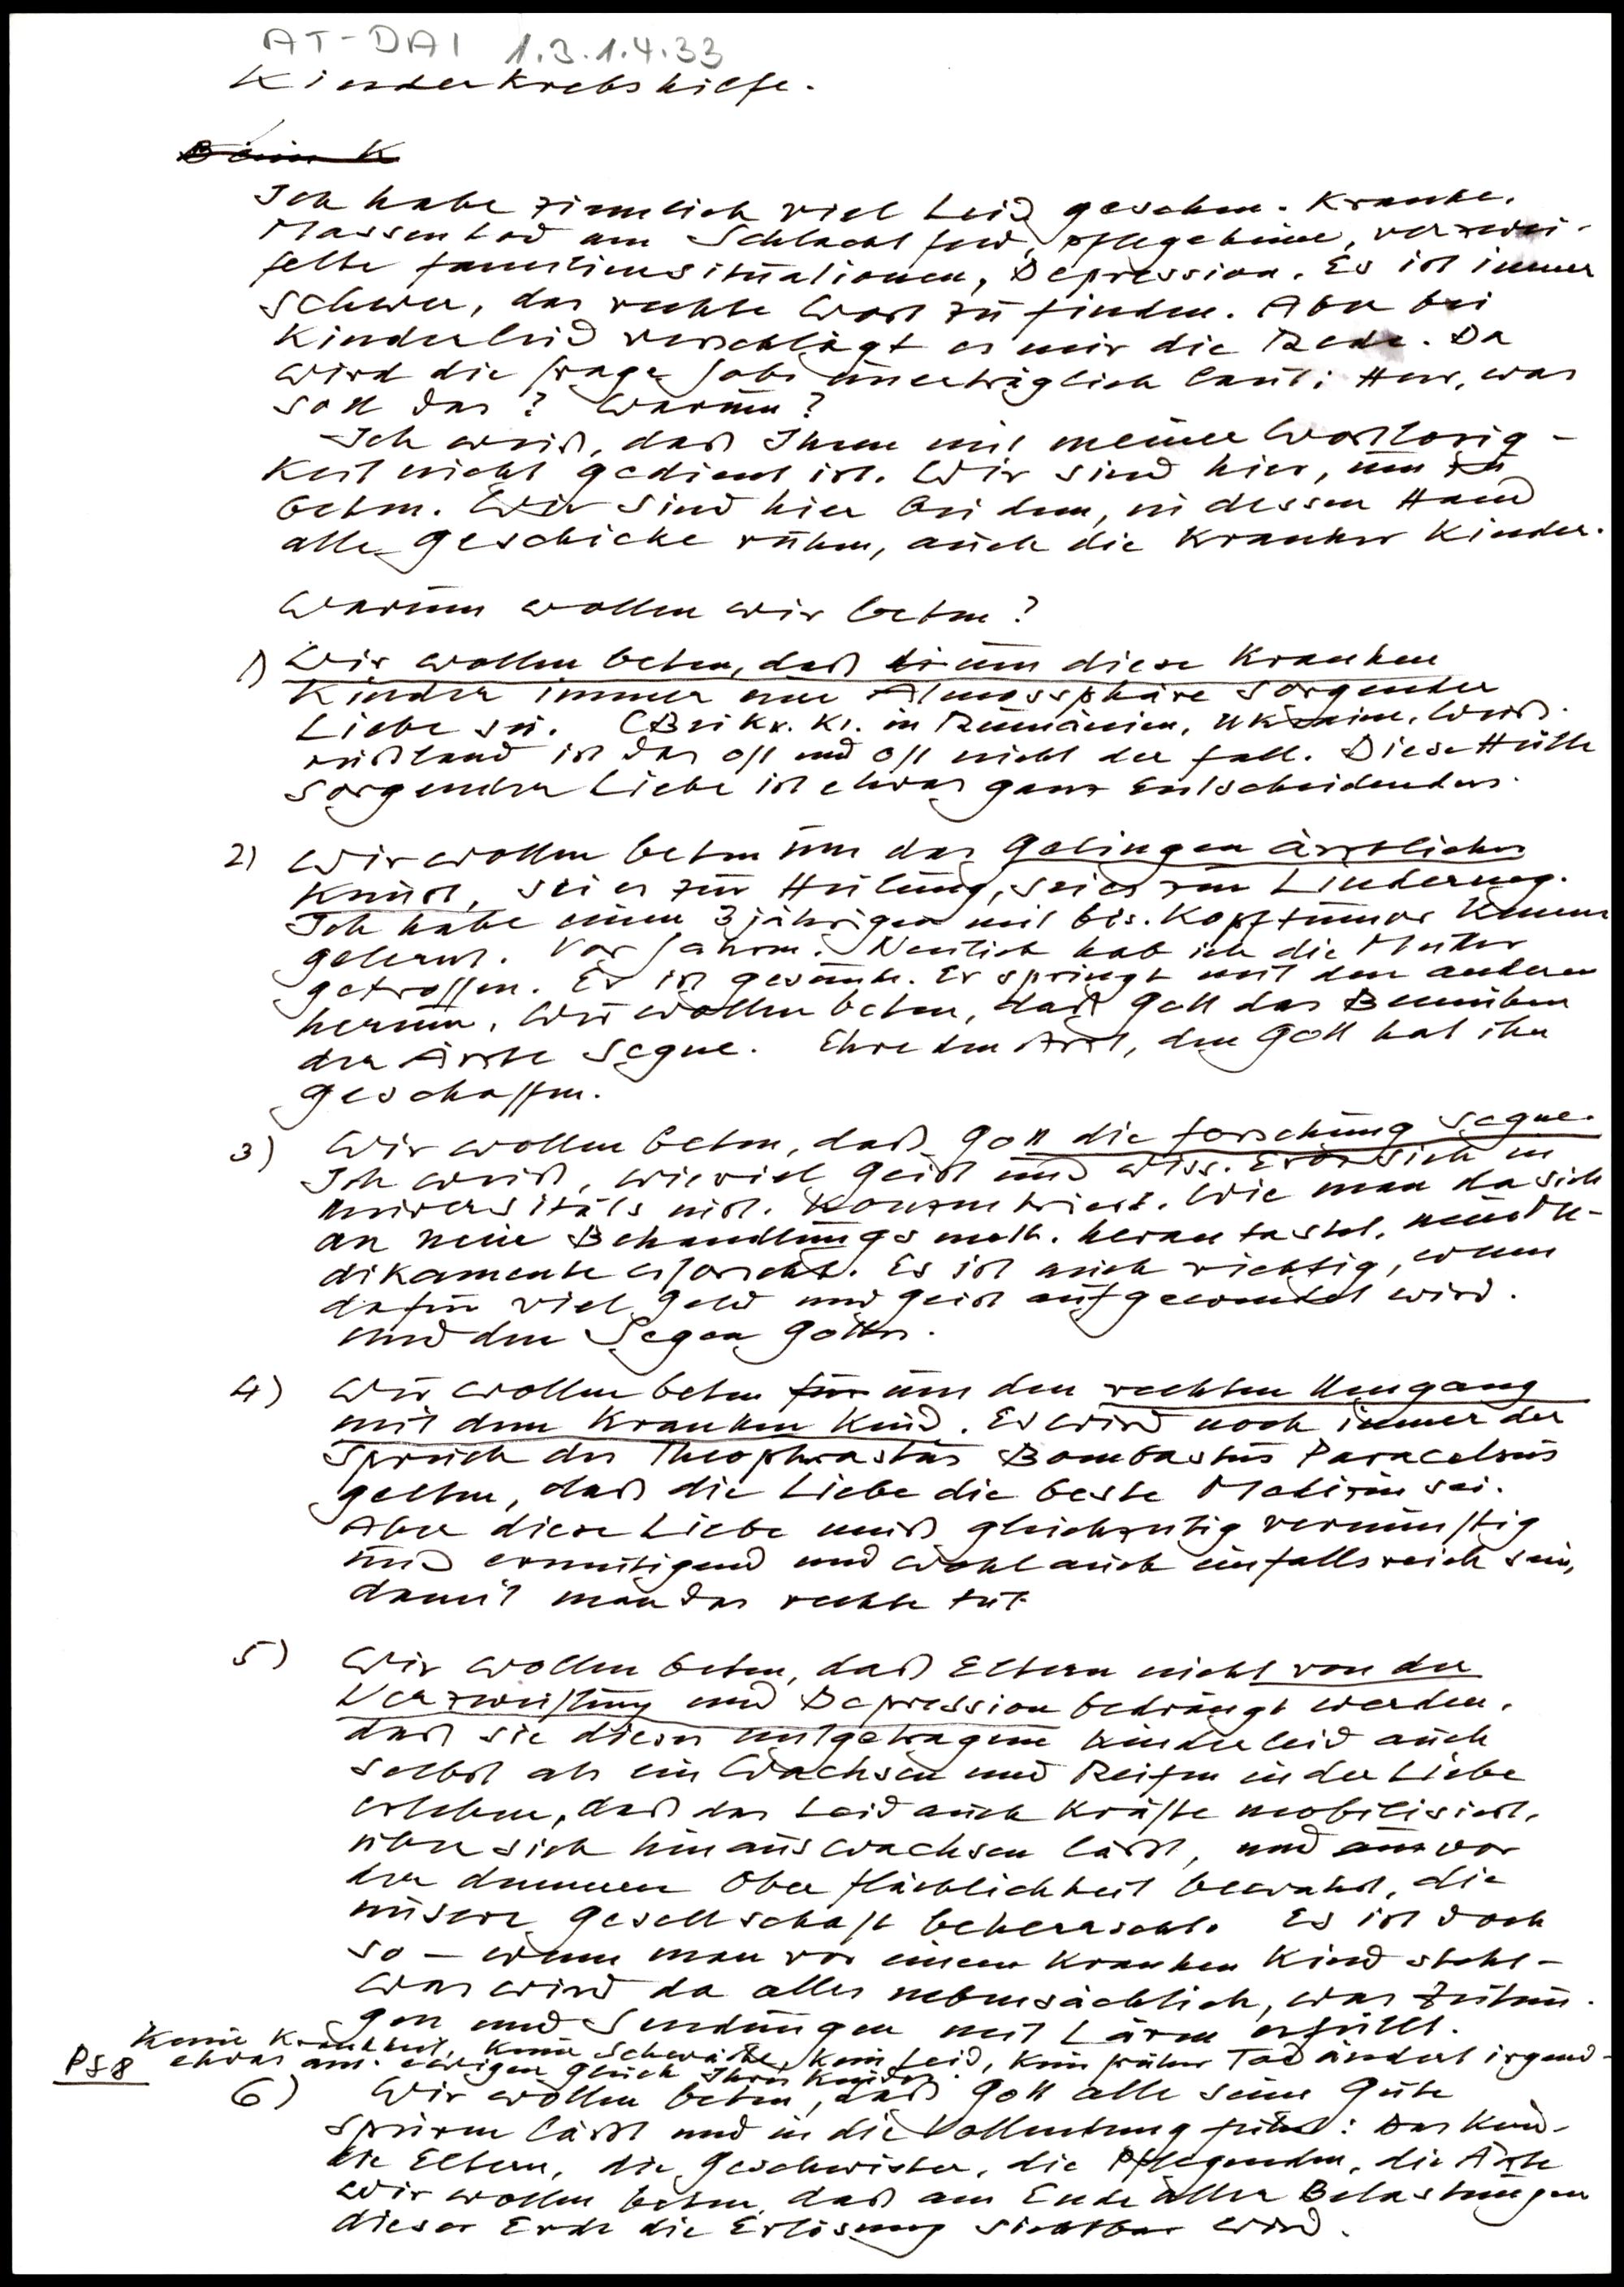 AT-DAI 1.3.1.4.33
Kinderkrebshilfe.
Beim K
Ich habe ziemlich viel Leid gesehen. Kranke,
Massentod am Schlachtfeld, Pflegeheime, verzwei-
felte Familiensituationen, Depression. Es ist immer
schwer, das rechte Wort zu finden. Aber bei
Kinderleid verschlägt es mir die Rede. Da
wird die Frage Jobs unerträglich laut: Herr, was
soll das? Warum?
Ich weiß, daß Ihnen mit meiner Wortlosig-
keit nicht gedient ist. Wir sind hier, um zu
beten. Wir sind hier bei dem, in dessen Hand
alle Geschicke ruhen, auch die kranker Kinder.
Warum wollen wir beten?
1) Wir wollen beten, daß um diese kranken
Kinder immer eine Atmossphäre sorgender
Liebe sei. (Bei kr. Ki. in Rumänien, Ukraine, Weiß-
rußland ist das oft und oft nicht der Fall. Diese Hülle
sorgender Liebe ist etwas ganz Entscheidendes.
2) Wir wollen beten um das Gelingen ärztlicher
Kunst, sei es zur Heilung, sei es zur Linderung.
Ich habe einen 3jährigen mit bös. Kopftumor kennen
gelernt. Vor Jahren. Neulich hab ich die Mutter
getroffen. Er ist gesund. Er springt mit den anderen
herum. Wir wollen beten, daß Gott das Bemühen
der Ärzte segne. Ehre den Arzt, denn Gott hat ihn
geschaffen.
3) Wir wollen beten, daß Gott die Forschung segne.
Ich weiß, wieviel Geist und Wiss. sich in
Universitäts inst. konzentriert. Wie man da sich
an neue Behandlungsmeth. herantastet, neue Me-
dikamente erforscht. Es ist auch richtig, wenn
dafür viel Geld und Geist aufgewendet wird.
und den Segen Gottes.
4) Wir wollen beten für um den rechten Umgang
mit dem kranken Kind. Es wird noch immer der
Spruch des Theophrastus Bombastus Paracelsus
gelten, daß die Liebe die beste Medizin sei.
Aber diese Liebe muß gleichzeitig vernünftig
und ermutigend und wohl auch einfallsreich sein,
damit man das rechte tut.
5) Wir wollen beten, daß Eltern nicht von der
Verzweiflung und Depression bedrängt werden,
daß sie dieses mitgetragene Kinderleid auch
selbst als ein Wachsen und Reifen in der Liebe
erleben, daß das Leid auch Kräfte mobilisiert,
über sich hinauswachsen läßt, und vor
der dummen Oberflächlichkeit bewahrt, die
unsere Gesellschaft beherrscht. Es ist doch
so – wenn man vor einem kranken Kind steht –
was wird da alles nebensächlich, was Zeitun-
gen und Sendungen mit Lärm erfüllt.
Keine Krankheit, keine Schwäche, kein Leid, kein früher Tod ändert irgend-
PS 8 etwas am ewigen Glück Ihres Kindes.
6) Wir wollen beten, daß Gott alle seine Güte
spüren läßt und in die Vollendung führt: Das Kind-
die Eltern, die Geschwister, die Pflegenden, die Ärzte
Wir wollen beten, daß am Ende aller Belastungen
dieser Erde die Erlösung sichtbar wird.